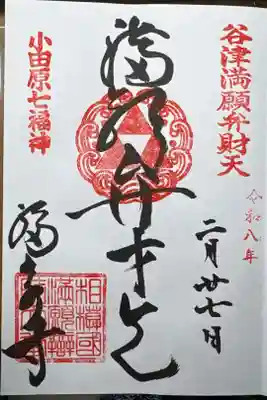 谷津満願弁財天
令和八年
二月廿七日
満願弁才天
小田原七福神
福泉寺
相模國